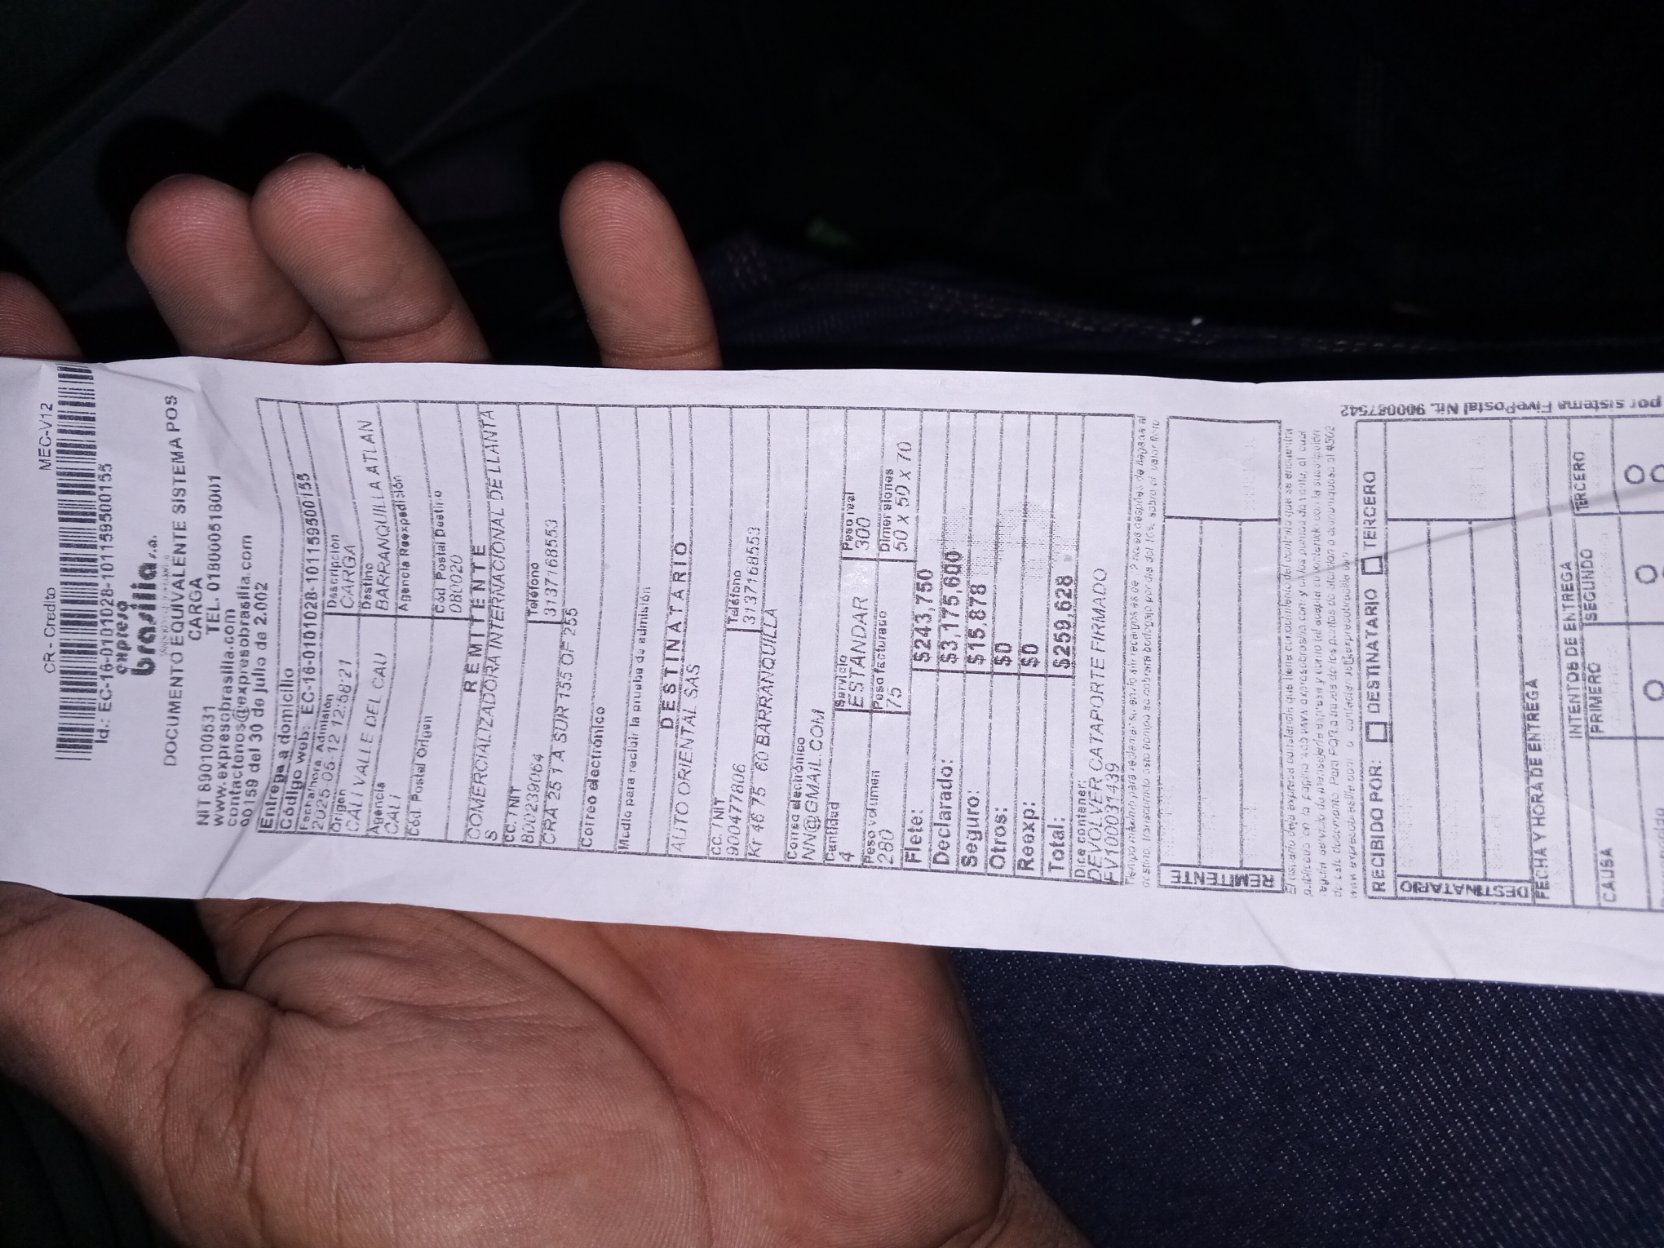 CR - Credito MEC-V12
Id.: EC-16-0101028-101159500155
expreso
brasilia s.a.
DOCUMENTO EQUIVALENTE SISTEMA POS
CARGA
NIT 890100531 TEL. 018000518001
www.expresobrasilia.com
contactenos@expresobrasilia.com
00159 del 30 de julio de 2.002
Entrega a domicilio
Código web: EC-16-0101028-101159500155
Fecha/hora Admisión Descripción
2025-05-12 12:58:21 CARGA
Origen Destino
CALI VALLE DEL CAU BARRANQUILLA ATLAN
Agencia Agencia Reexpedición
CALI
Cód. Postal Origen Cód. Postal Destino
080020
REMITENTE
COMERCIALIZADORA INTERNACIONAL DE LLANTA
S
CC. / NIT Teléfono
800239064 3137168553
CRA 25 1 A SUR 155 OF 255
Correo electrónico
Medio para recibir la prueba de admisión
DESTINATARIO
AUTO ORIENTAL SAS
CC. / NIT Teléfono
900477806 3137168553
Kr 46 75 60 BARRANQUILLA
Correo electrónico
NN@GMAIL.COM
Cantidad Servicio Peso real
4 ESTANDAR 300
Peso volumen Peso facturado Dimensiones
280 75 50 X 50 X 70
Flete: $243,750
Declarado: $3,175,600
Seguro: $15,878
Otros: $0
Reexp: $0
Total: $259,628
Dice contener:
DEVOLVER CATAPORTE FIRMADO
FV100031439
REMITENTE
RECIBIDO POR: DESTINATARIO TERCERO
DESTINATARIO
FECHA Y HORA DE ENTREGA
INTENTOS DE ENTREGA
CAUSA PRIMERO SEGUNDO TERCERO
por sistema FivePostal Nit. 900087542